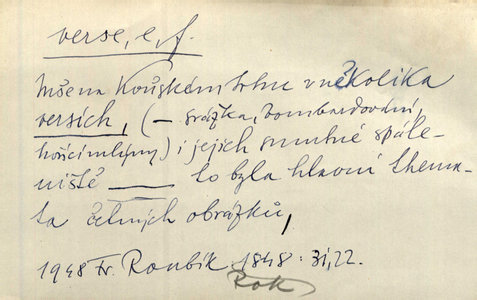 verse, e, f.
Mše na Koňském trhu v několika
versích, (– srážka, bombardování,
hořící mlýny) i jejich smutné spále-
niště —— to byla hlavní thema-
ta četných obrázků,
1948 Fr. Roubík 1848: 31,22.
Rok